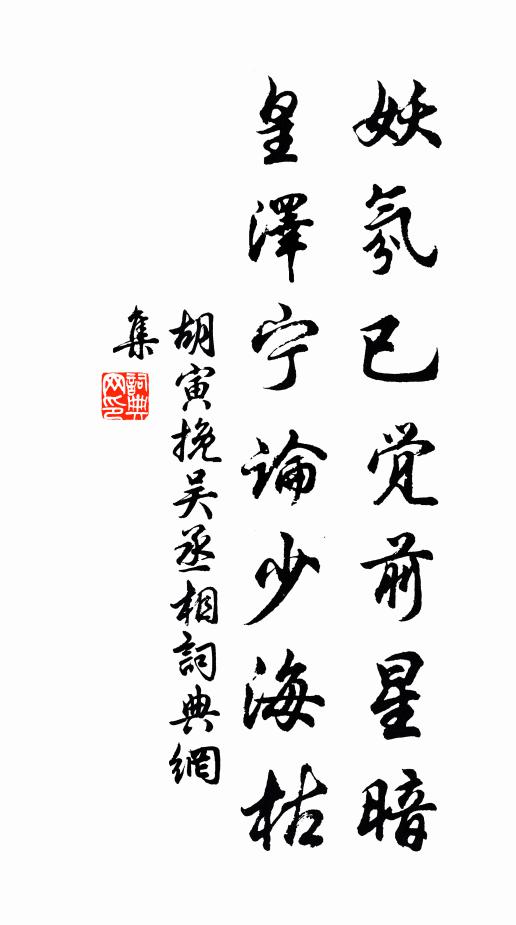 妖氛已觉前星暗
皇澤宁論少海枯
胡寅挽吴丞相詞典網
集
詞典
网印